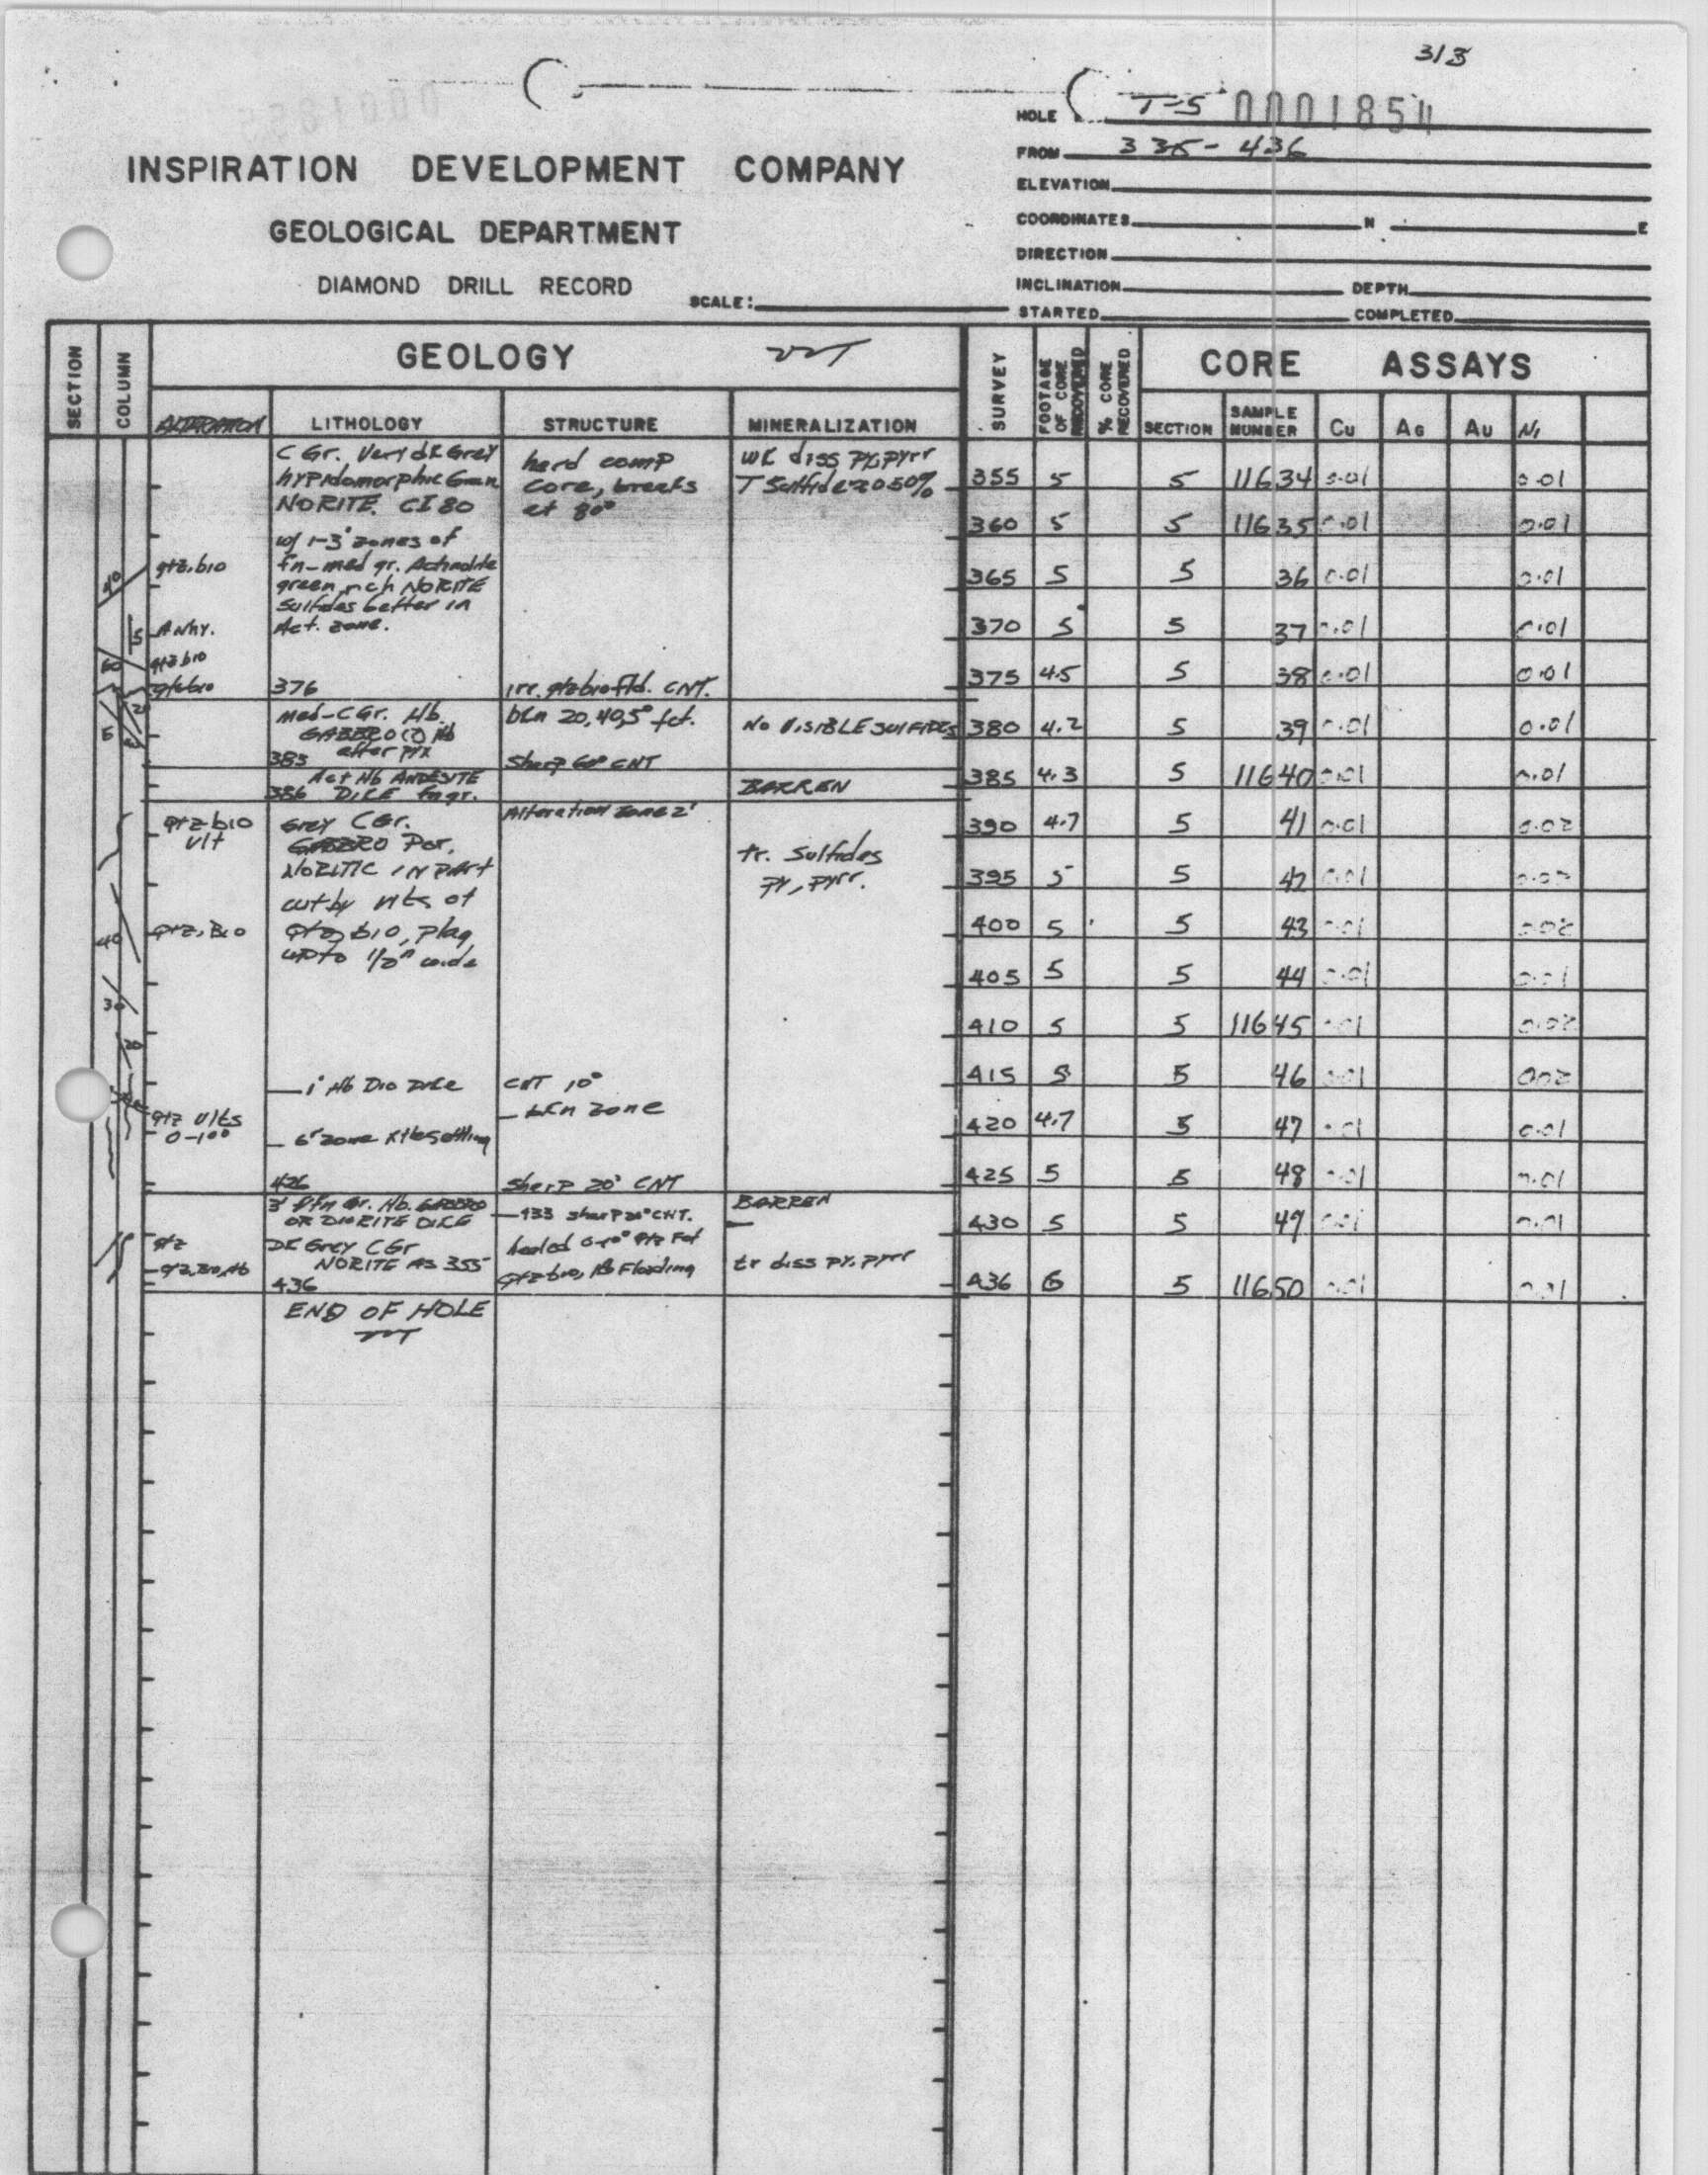 313
HOLE T-5 0001854
FROM 335-436
INSPIRATION DEVELOPMENT COMPANY
ELEVATION
COORDINATES N E
GEOLOGICAL DEPARTMENT
DIRECTION
DIAMOND DRILL RECORD
INCLINATION DEPTH
SCALE:
STARTED COMPLETED
SECTION
COLUMN
GEOLOGY
SURVEY
FOOTAGE OF CORE RECOVERED
% CORE RECOVERED
CORE ASSAYS
ALTERATION LITHOLOGY STRUCTURE MINERALIZATION SECTION SAMPLE NUMBER Cu AG AU Ni
C Gr. Very dk Grey
hypidomorphic Gran
NORITE. CI 80
w/ 1-3' zones of
fn-med gr. Actinolite
green rich NORITE
sulfides better in
Act. zone.
hard comp
core, breaks
at 80°
wk diss py, pyrr
T Sulfides 0.50%
40
qtz, bio
5
Anhy.
60
qtz bio
qtz bio
376
irr. qtz bio Fld. CNT.
Med-CGr. Hb.
GABBRO Hb
after pyx
bkn 20, 40, 5° fct.
No VISIBLE SULFIDES
383
Sharp 60° CNT
Act Hb ANDESITE
386 DIKE fn gr.
BARREN
Alteration zone 2'
qtz bio
vlt
Grey CGr.
GABBRO Por.
NORITIC IN part
cut by vlts of
qtz, bio, plag
up to 1/2" wide
tr. Sulfides
py, pyrr.
40
qtz, Bio
30
20
1' Hb Dio Dike
CNT 10°
bkn zone
qtz vlts
0-10°
6" zone xtl settling
426
Sharp 20° CNT
3' Fn Gr. Hb. GABBRO
OR DIORITE DIKE
433 sharp 20° CNT.
BARREN
qtz
qtz, Bio, Hb
DK Grey CGr
NORITE AS 355
healed 0-10° qtz Fct
qtz bio, Hb Flooding
tr diss py, pyrr
436
END OF HOLE
355 5 5 11634 0.01 0.01
360 5 5 11635 0.01 0.01
365 5 5 36 0.01 0.01
370 5 5 37 0.01 0.01
375 4.5 5 38 0.01 0.01
380 4.2 5 39 0.01 0.01
385 4.3 5 11640 0.01 0.01
390 4.7 5 41 0.01 0.02
395 5 5 42 0.01 0.02
400 5 5 43 0.01 0.02
405 5 5 44 0.01 0.01
410 5 5 11645 0.01 0.02
415 5 5 46 0.01 0.02
420 4.7 5 47 0.01 0.01
425 5 5 48 0.01 0.01
430 5 5 49 0.01 0.01
436 6 5 11650 0.01 0.01